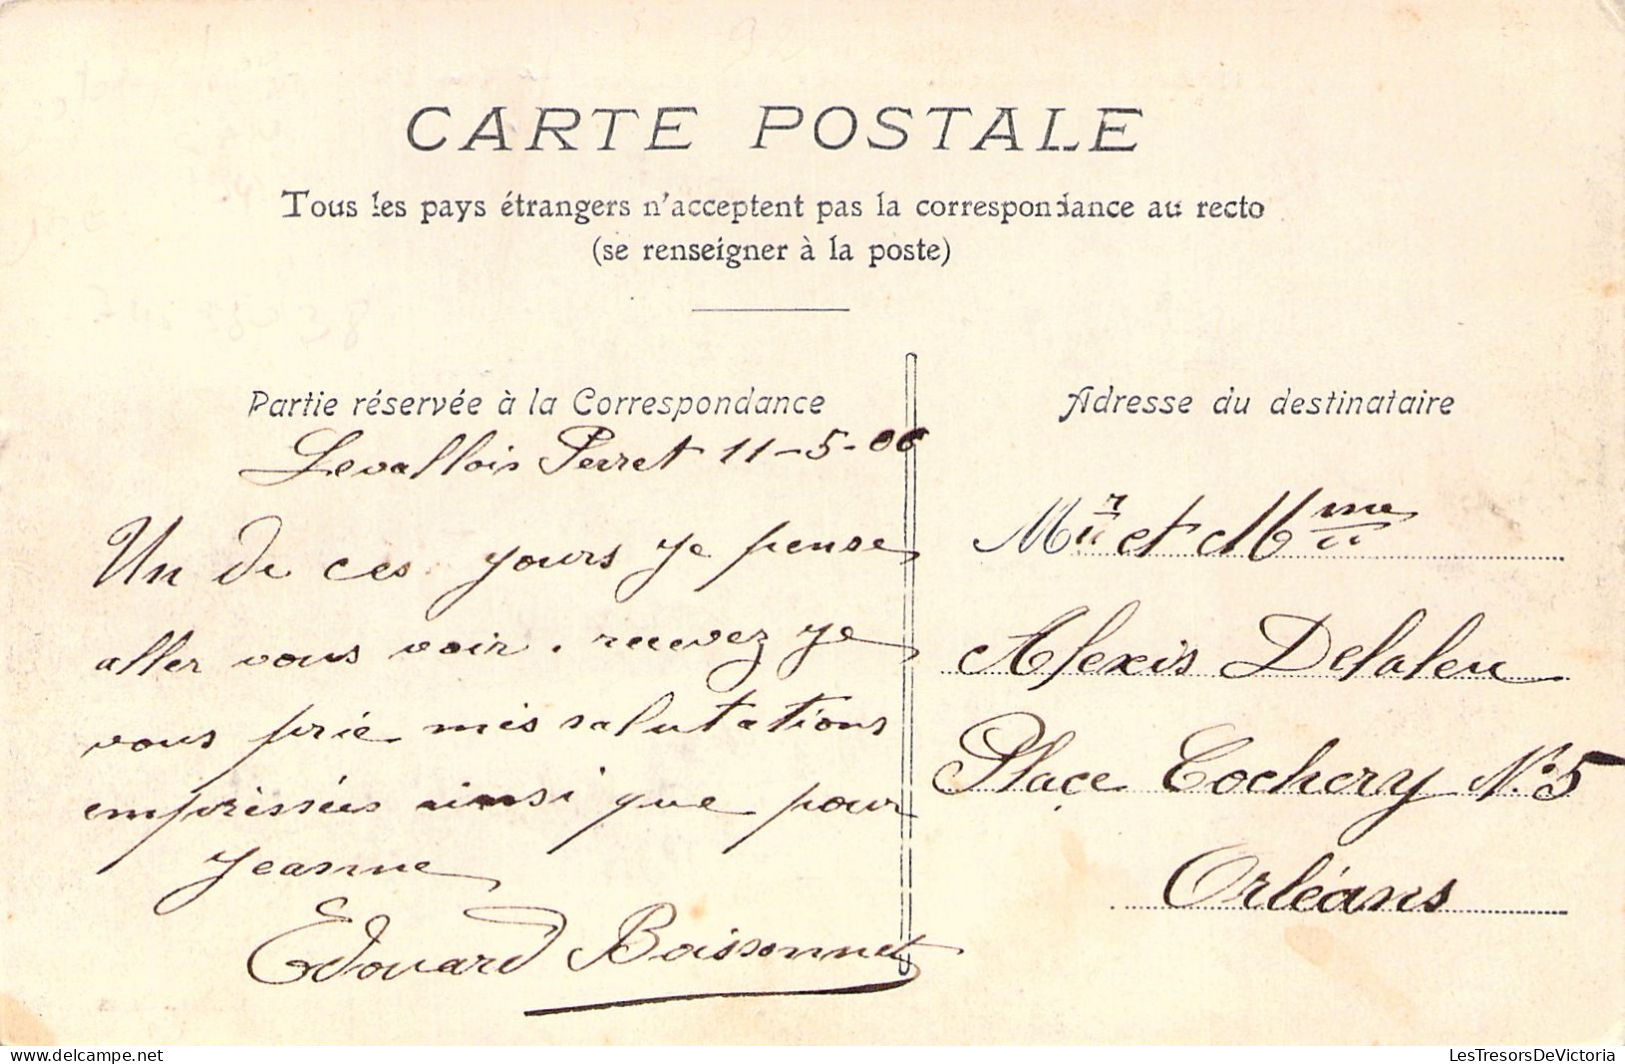 CARTE POSTALE
Tous les pays étrangers n'acceptent pas la correspondance au recto
(se renseigner à la poste)
Partie réservée à la Correspondance
Levallois Perret 11-5-06
Un de ces jours je pense
aller vous voir. recevez je
vous prie mes salutations
empressées ainsi que pour
Jeanne
Edouard Boissonnet
Adresse du destinataire
Mr et Mme
Alexis Delaleu
Place Cochery N° 5
Orléans
LesTresorsDeVictoria